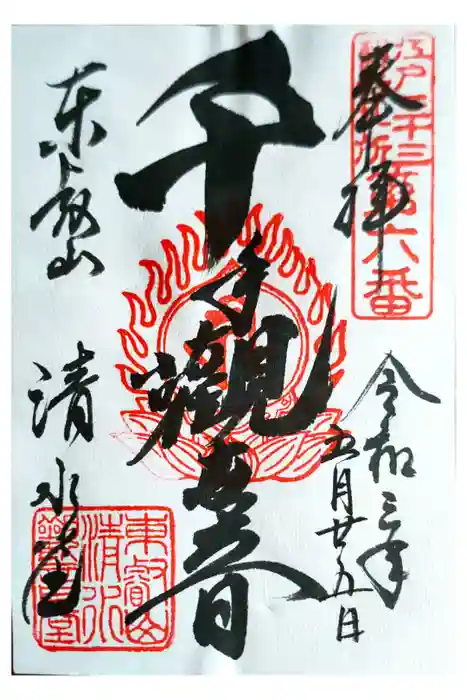 奉拝
江戸三十三所第六番
令和三年
五月廿五日
千手觀世音
東叡山
清水堂
東叡山
清水
觀音堂